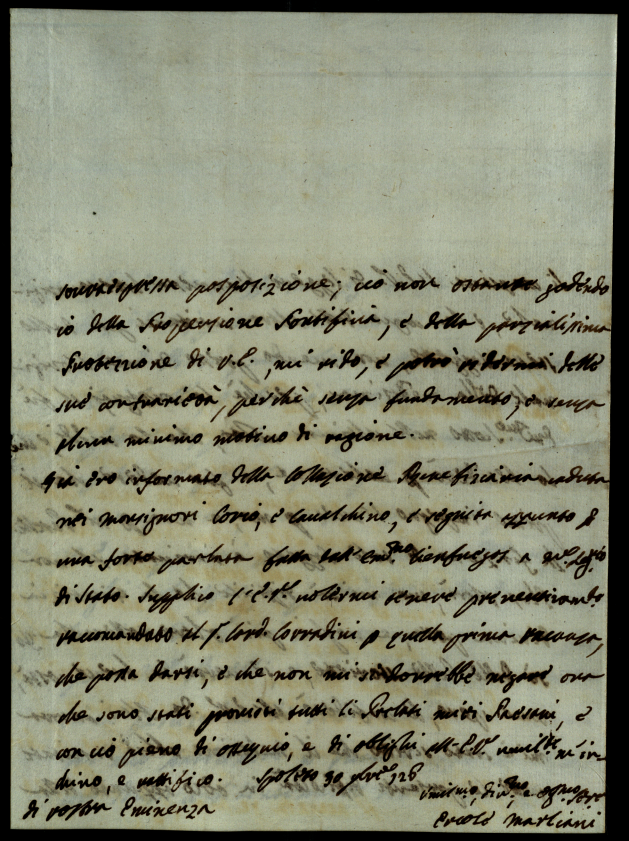 sovraespressa posposizione; ciò non ostante godendo
io della Propensione Pontificia, e della parzialissima
Protezzione di V.E., mi rido, e potrò ridermi delle
sue contrarietà, perchè senza fundamento, e senza
alcun minimo motivo di ragione.
Già ero informato della Collazione Beneficiaria caduta
nei Monsignori Corio, e Cavalchino, e seguita appunto p
una forte parlata fatta dall' Em.mo Cienfuegos a
di Stato. Supplico l'E.V. volermi tenere
raccomandato al S. Card. Corradini p quella prima vacanza,
che possa darsi, e che non mi si dovrebbe negare ora
che sono stati provisti tutti li Prelati miei Paesani, e
con ciò pieno di ossequio, e di oblighi all'E.V. m'in-
chino, e rattifico. Spoleto 30 726
di Vostra Eminenza
Ercole Marliani